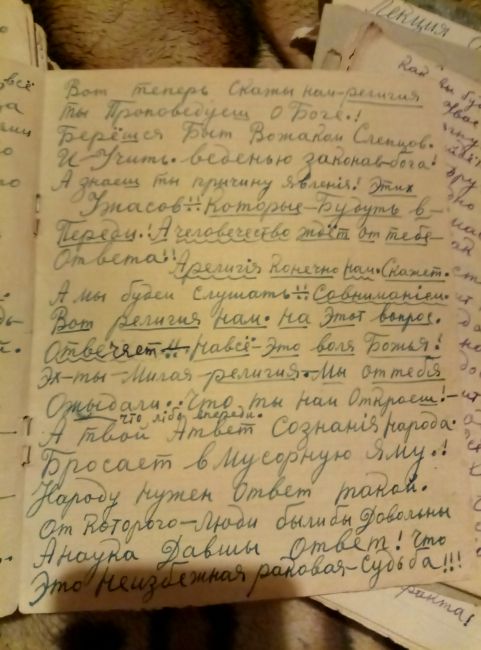 Лекция
Вот теперь Скажы нам-религия
ты Проповедуеш О Боге.!
Берёшся Быт Вожаком Слепцов.
И-Учить. веденью законав-бога!
А знаеш ты причину явленія! Этих
Ужасов!! Которые-Будуть в-
Переди! А человечество ждёт от тебе-
Ответа!!
Арелигія Конечно нам. Скажет.
А мы будем слушать!! Совниманіем.
Вот религия нам. на Этот вопрос.
Отвечяет!! Навсё-Это воля Божья!
Эх-ты-Милая-религия. Мы от тебя
Ожыдали.. Что ты нам Откроеш!-
что лібо впереди.
А твой Атвет Сознанія народа.
Бросает в Мусорную Яму.!
Народу нужен Ответ такой.
От Которого-Люди былибы Довольны
Анаука Давшы Ответ! Что
Это неизбежная раковая-Судьба!!!